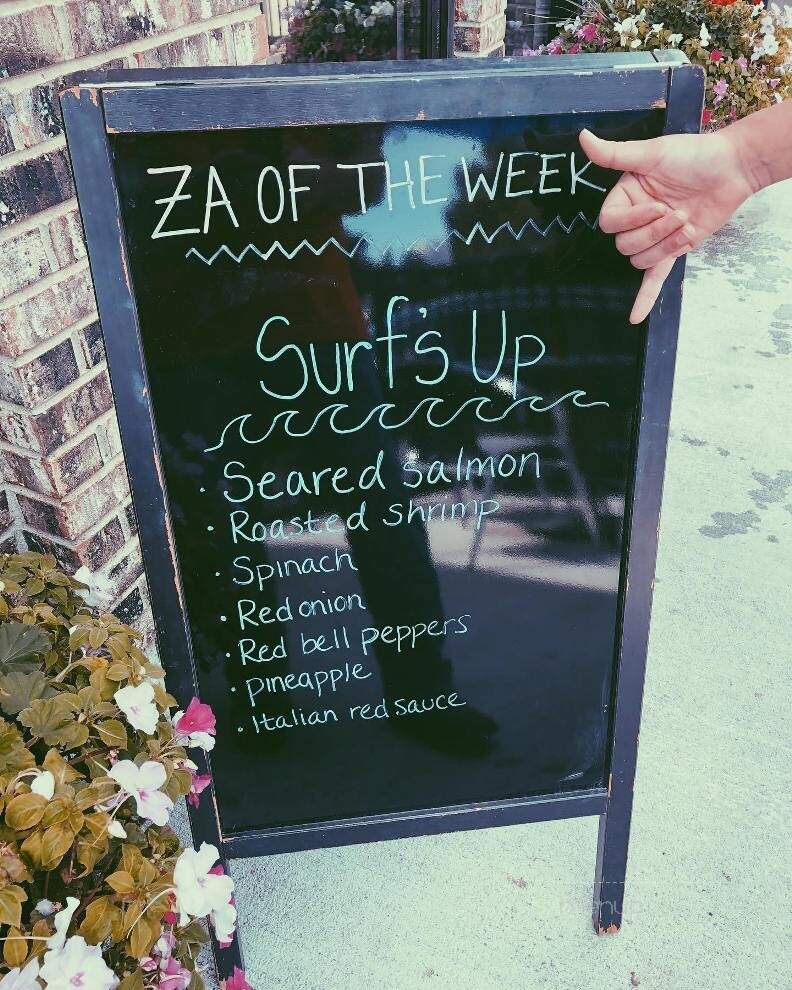 ZA OF THE WEEK
Surf's Up
· Seared salmon
· Roasted shrimp
· Spinach
· Red onion
· Red bell peppers
· pineapple
· Italian red sauce